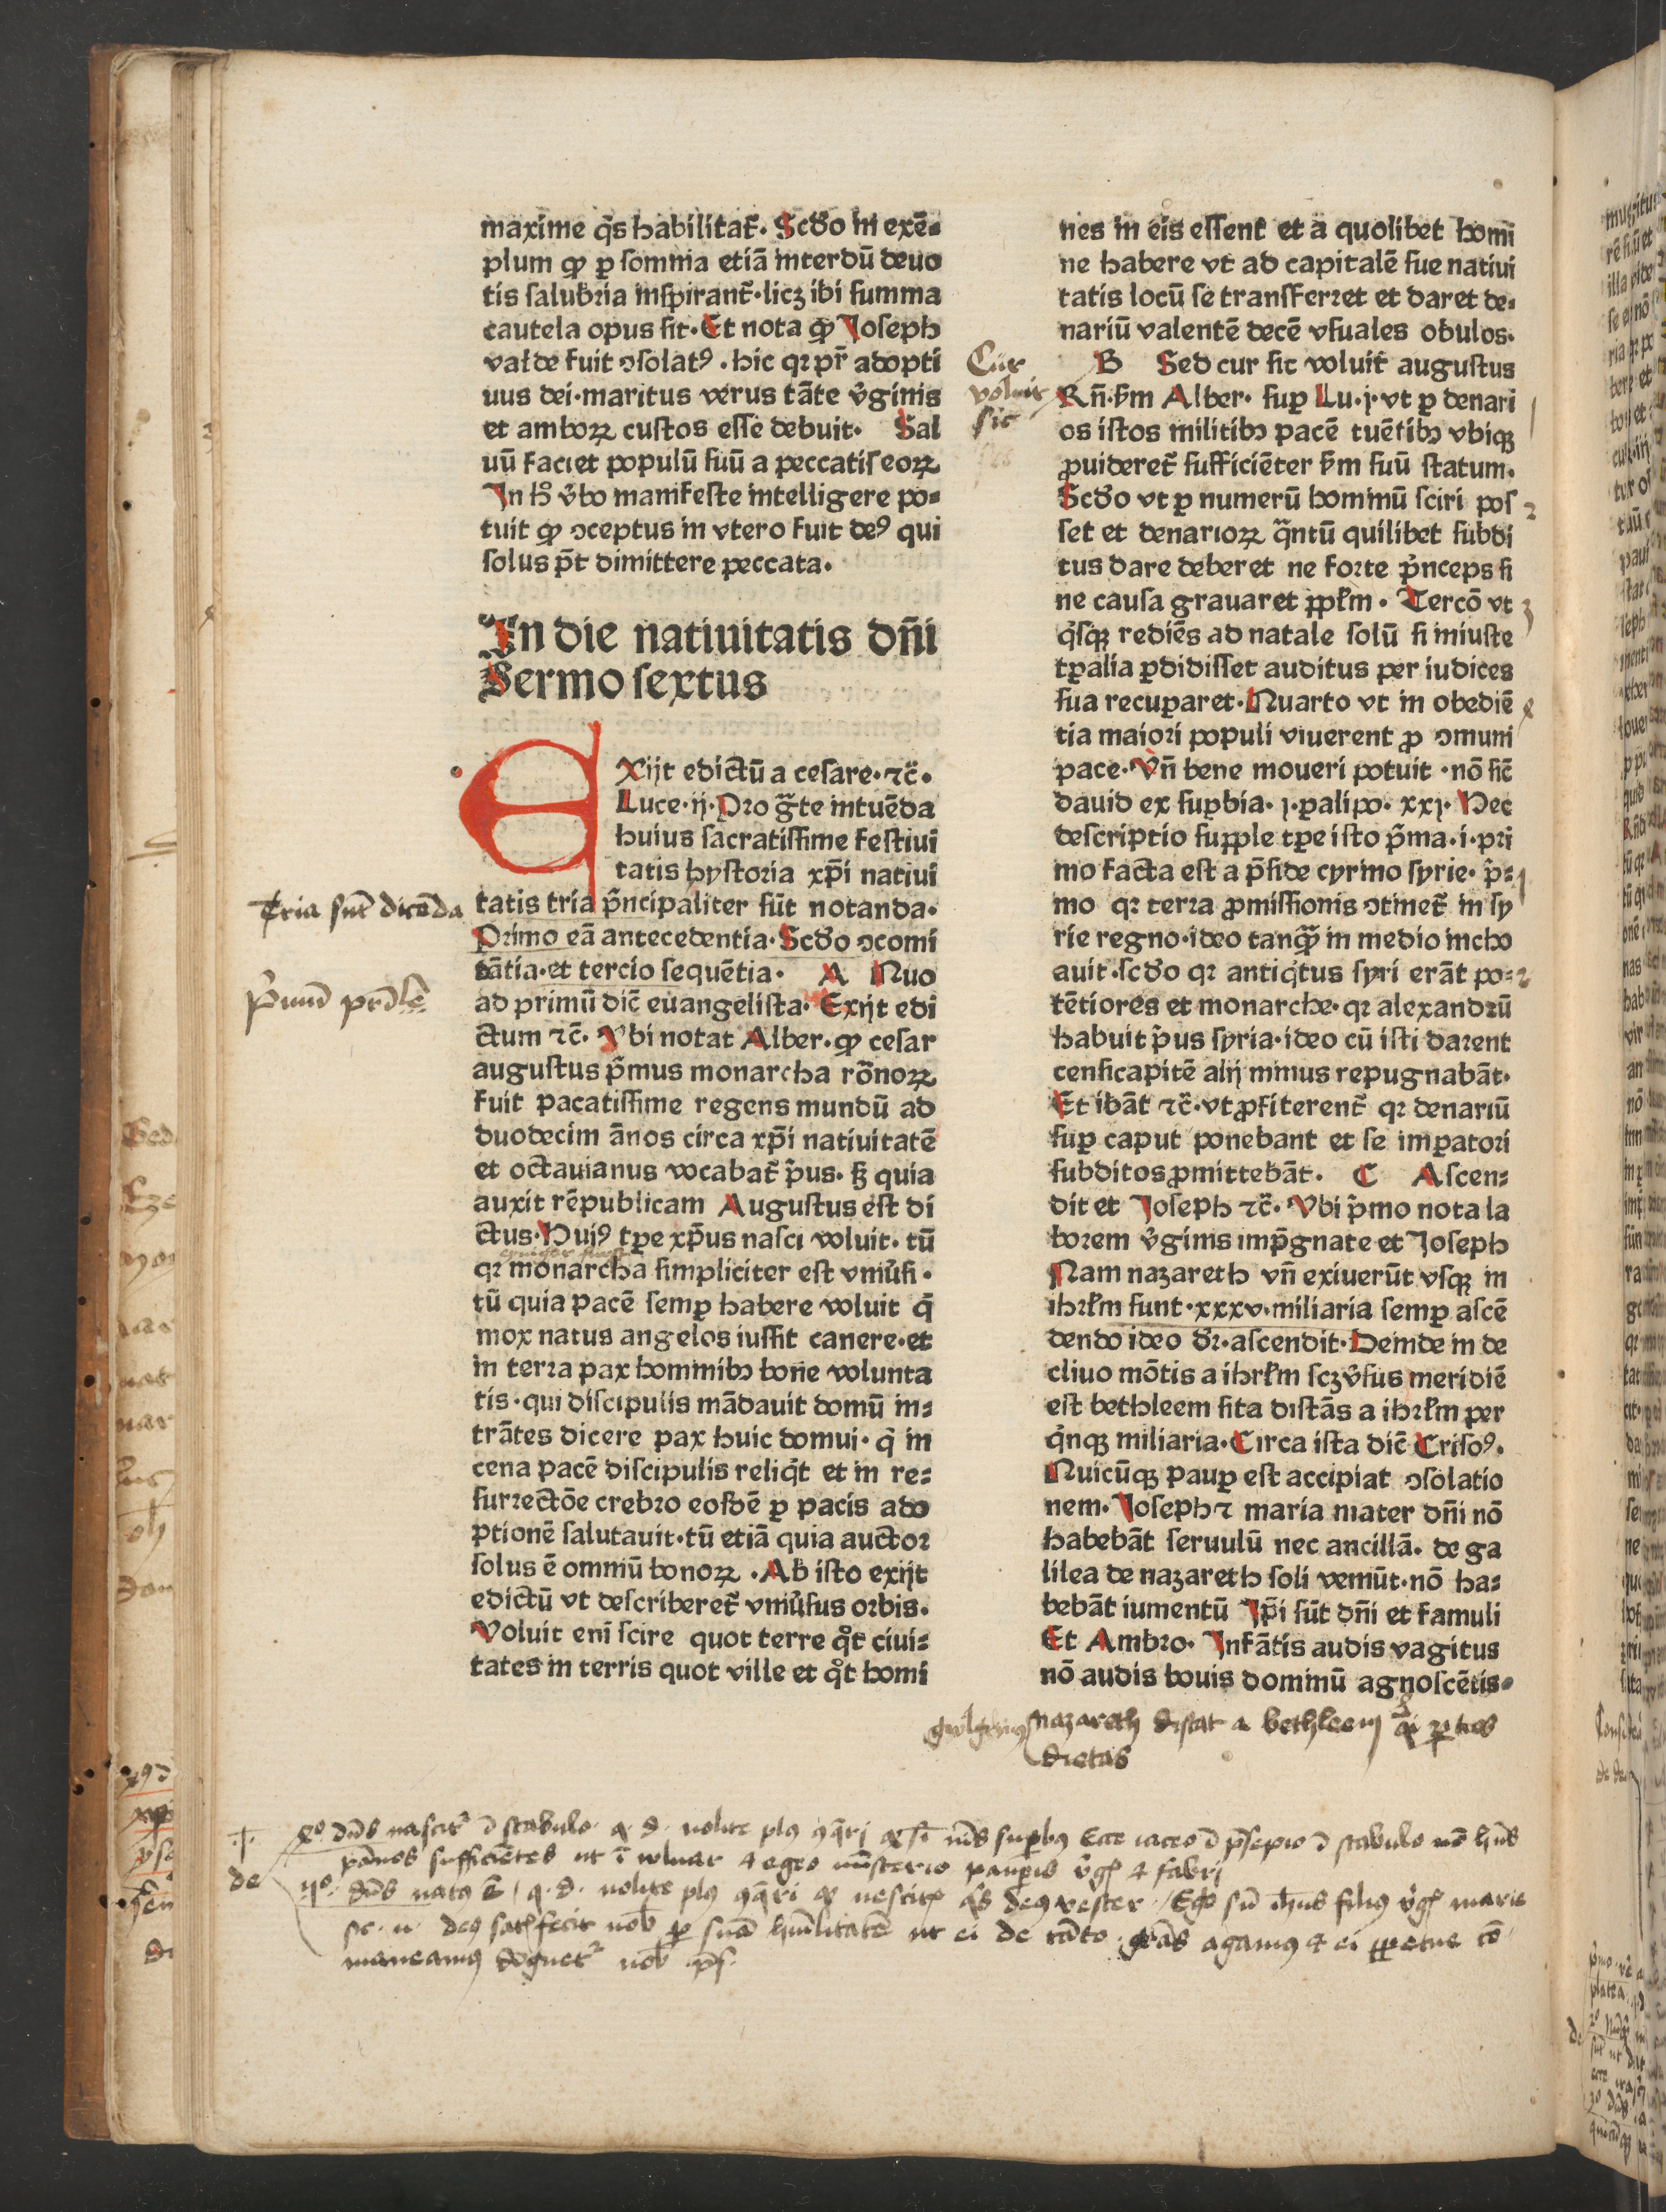 maxime q̄s habilitat̄. Scd̄o in exē-
plum ꝙ ꝑ somnia etiā interdū deuo
tis salubria inspirant̄. licꝫ ibi summa
cautela opus sit. Et nota ꝙ Joseph
valde fuit ↄsolatꝰ. hic qꝛ pr̄ adopti
uus dei. maritus verus tāte v̄ginis
et amboꝝ custos esse debuit. Sal
uū faciet populū suū a peccatis eoꝝ
In h̄ v̄bo manifeste intelligere po-
tuit ꝙ ↄceptus in vtero fuit deꝰ qui
solus pt̄ dimittere peccata.
In die natiuitatis dn̄i
Sermo sextus
EXijt edictū a cesare. ⁊c̄.
Luce. ij. Pro gr̄te intuēda
huius sacratissime festiui
tatis hystoria xp̄i natiui
tatis tria pn̄cipaliter sūt notanda.
Primo eā antecedentia. Scd̄o ↄcomi
tātia. et tercio sequētia. A Quo
ad primū dic̄ euangelista. Exijt edi
ctum ⁊c̄. Vbi notat Alber. ꝙ cesar
augustus p̄mus monarcha rōnoꝝ
fuit pacatissime regens mundū ad
duodecim ānos circa xp̄i natiuitatē
et octauianus vocabat̄ p̄us. sꝫ quia
auxit rēpublicam Augustus est di
ctus. Huiꝰ tꝑe xp̄us nasci voluit. tū
qꝛ monarcha simpliciter est vniūsi.
tū quia pacē semꝑ habere voluit q̄
mox natus angelos iussit canere. et
in terra pax hominibꝫ bone volunta
tis. qui discipulis mādauit domū in-
trātes dicere pax huic domui. q̄ in
cena pacē discipulis reliq̄t et in re-
surrectōe crebro eosdē ꝑ pacis ado
ptionē salutauit. tū etiā quia auctor
solus ē omniū bonoꝝ. Ab isto exijt
edictū vt describeret̄ vniūsus orbis.
Voluit enī scire quot terre qͦt ciui-
tates in terris quot ville et qͦt homi
nes in eis essent et a quolibet homi
ne habere vt ad capitalē sue natiui
tatis locū se transferret et daret de-
nariū valentē decē vsuales obulos.
B Sed cur sic voluit augustus
Rn̄. ẜm Alber. suꝑ Lu. j. vt ꝑ denari
os istos militibꝫ pacē tuētibꝫ vbiqꝫ
ꝓuideret̄ sufficiēter ẜm suū statum.
Scd̄o vt ꝑ numerū hominū sciri pos
set et denarioꝝ q̄ntū quilibet subdi
tus dare deberet ne forte p̄nceps si
ne causa grauaret ppłm. Tercō vt
q̇sqꝫ rediēs ad natale solū si iniuste
tꝑalia ꝑdidisset auditus per iudices
sua recuꝑaret. Quarto vt in obediē
tia maiori populi viuerent ꝓ ↄmuni
pace. Vn̄ bene moueri potuit. nō sic̄
dauid ex suꝑbia. j. ꝑalipo. xxj. Hec
descriptio supple tꝑe isto p̄ma. i. pri
mo facta est a p̄side cyrino syrie. p̄-
mo qꝛ terra ꝓmissionis ↄtinet̄ in sy
rie regno. ideo tanꝗ̄ in medio incho
auit. scd̄o qꝛ antiq̇tus syri erāt po-
tētiores et monarche. qꝛ alexandrū
habuit p̄us syria. ideo cū isti darent
censicapitē alij minus repugnabāt.
Et ibāt ⁊c̄. vt ꝓfiterent̄ qꝛ denariū
suꝑ caput ponebant et se imꝑatori
subditos ꝓmittebāt. C Ascen-
dit et Joseph ⁊c̄. Vbi p̄mo nota la
borem v̄ginis imp̄gnate et Joseph
Nam nazareth vn̄ exiuerūt vsqꝫ in
ihrłm sunt. xxxv. miliaria semꝑ ascē
dendo ideo dr̄. ascendit. Deinde in de
cliuo mōtis a ihrłm scꝫ v̄sus meridiē
est bethleem sita distās a ihrłm per
q̇nqꝫ miliaria. Circa ista dic̄ Crisoꝰ.
Quicūqꝫ pauꝑ est accipiat ↄsolatio
nem. Joseph ⁊ maria mater dn̄i nō
habebāt seruulū nec ancillā. de ga
lilea de nazareth soli veniūt. nō ha-
bebāt iumentū Ip̄i sūt dn̄i et famuli
Et Ambro. Infātis audis vagitus
nō audis bouis dominū agnoscētis.
Cur
voluit
sic
2
3
Tria sūt dicēda
nazareth distat a bethleem
dietas
de